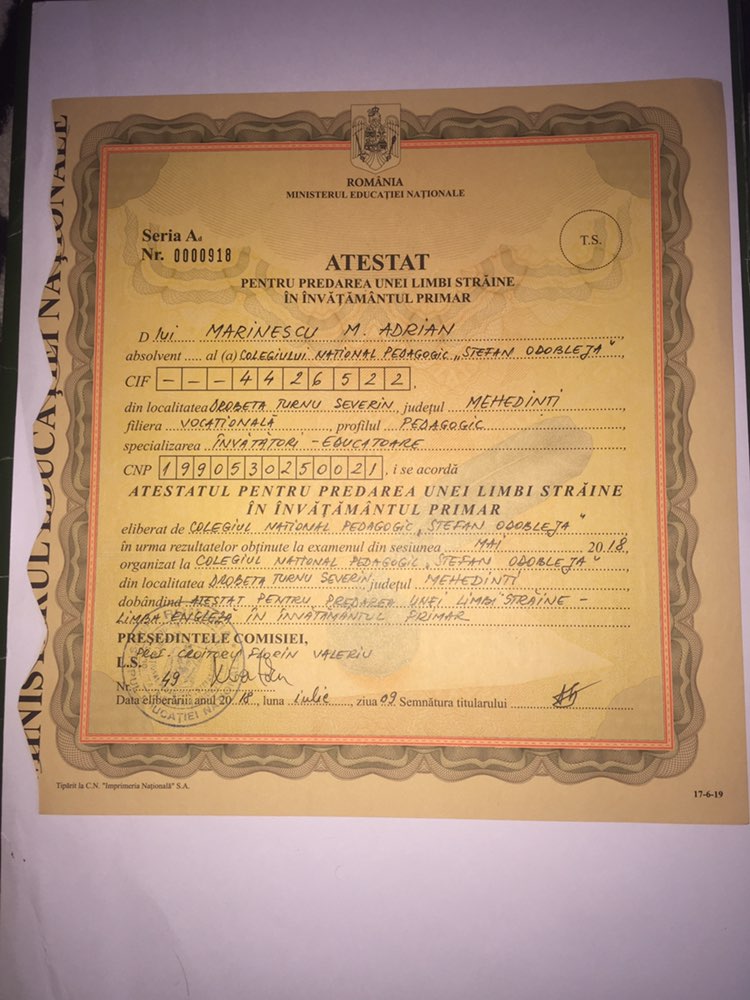 MINISTERUL EDUCAȚIEI NAȚIONALE
ROMÂNIA
MINISTERUL EDUCAȚIEI NAȚIONALE
Seria Ad
Nr. 0000918
T.S.
ATESTAT
PENTRU PREDAREA UNEI LIMBI STRĂINE
ÎN ÎNVĂȚĂMÂNTUL PRIMAR
D lui MARINESCU M. ADRIAN
absolvent ..... al (a) COLEGIULUI NAȚIONAL PEDAGOGIC „ȘTEFAN ODOBLEJA"
CIF - - - 4 4 2 6 5 2 2,
din localitatea DROBETA TURNU SEVERIN, județul MEHEDINTI
filiera VOCAȚIONALĂ, profilul PEDAGOGIC
specializarea ÎNVĂȚĂTORI - EDUCATOARE
CNP 1 9 9 0 5 3 0 2 5 0 0 2 1, i se acordă
ATESTATUL PENTRU PREDAREA UNEI LIMBI STRĂINE
ÎN ÎNVĂȚĂMÂNTUL PRIMAR
eliberat de COLEGIUL NAȚIONAL PEDAGOGIC „ȘTEFAN ODOBLEJA"
în urma rezultatelor obținute la examenul din sesiunea MAI 2018,
organizat la COLEGIUL NAȚIONAL PEDAGOGIC „ȘTEFAN ODOBLEJA"
din localitatea DROBETA TURNU SEVERIN, județul MEHEDINTI
dobândind ATESTAT PENTRU PREDAREA UNEI LIMBI STRĂINE -
LIMBA ENGLEZĂ ÎN ÎNVĂȚĂMÂNTUL PRIMAR
PREȘEDINTELE COMISIEI,
Prof. CROITORU FLORIN VALERIU
L.S.
Nr. 49
Data eliberării: anul 2018, luna iulie, ziua 09 Semnătura titularului
Tipărit la C.N. "Imprimeria Națională" S.A.
17-6-19